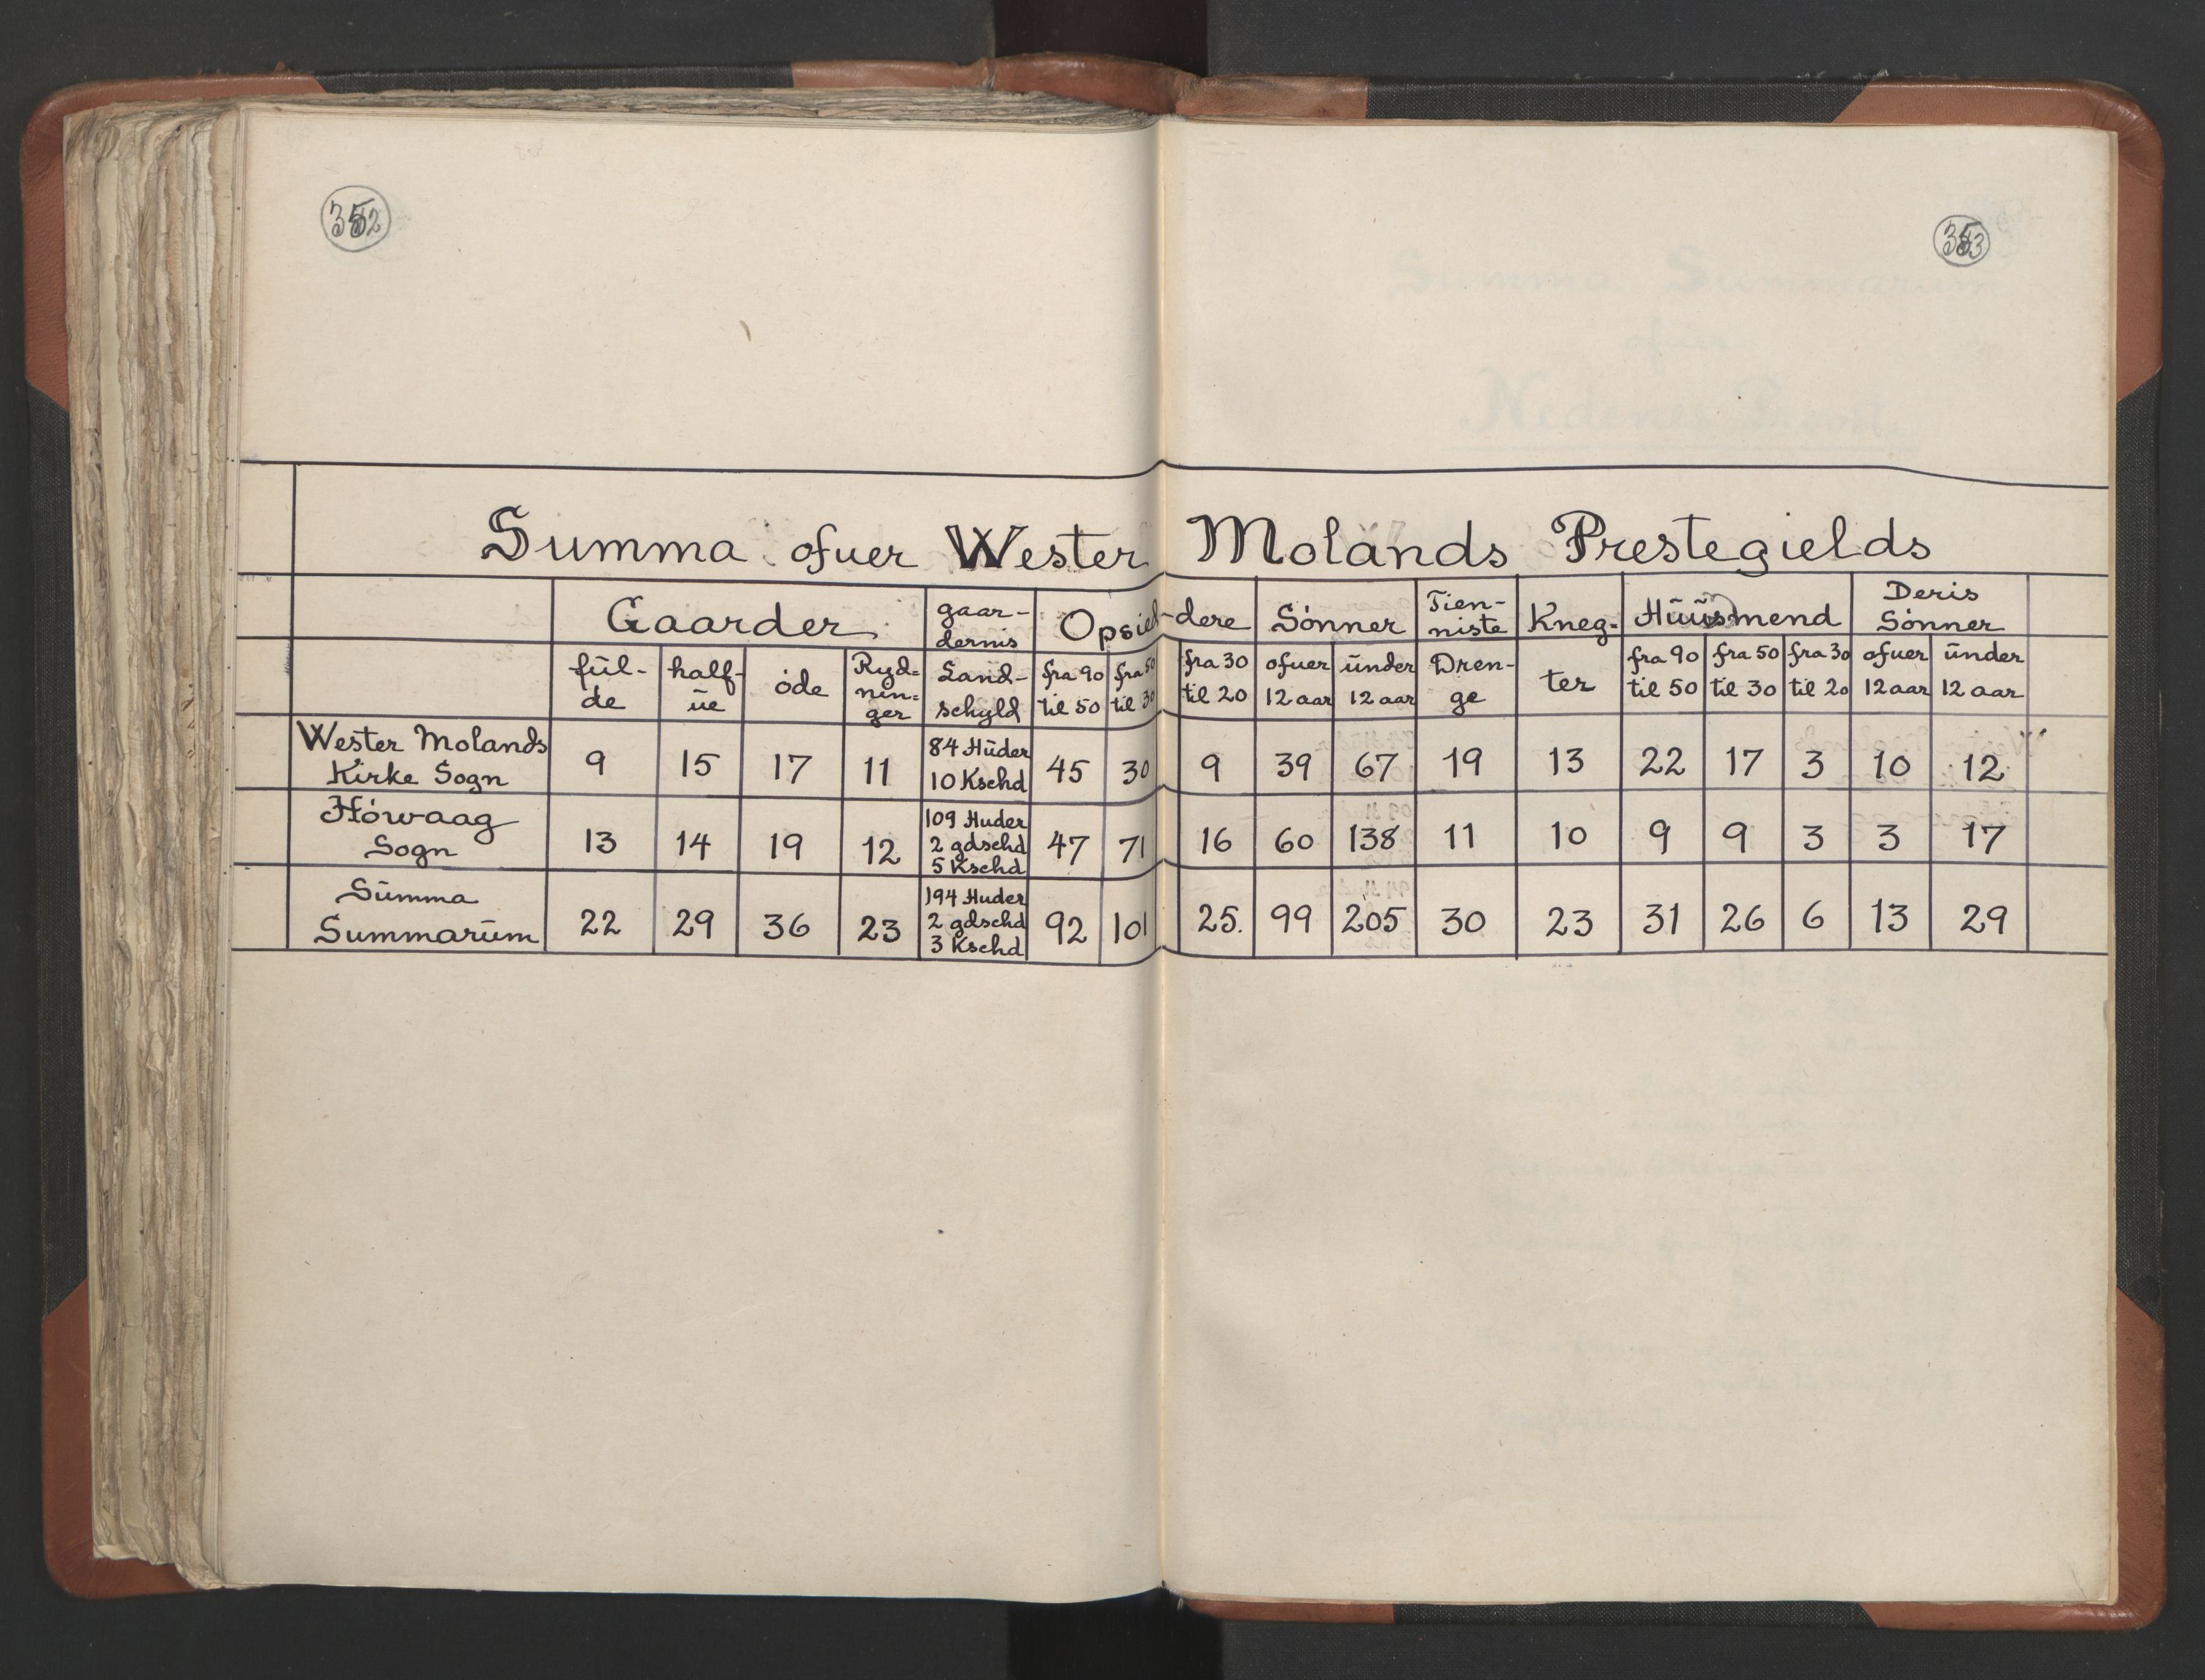 352
353
Summa ofuer Wester Molands Prestegields
Gaarder gaar- Opsied-dere Sónner Tien- Kneg- Hüüsmend Deris
dernis niste Sónner
fül- half- óde Ryd- Land- fra 90 fra 50 fra 30 ofuer ünder Dren- ter fra 90 fra 50 fra 30 ofuer ünder
de üe nin- schyld til 50 til 30 til 20 12 aar 12 aar ge til 50 til 30 til 20 12 aar 12 aar
ger
Wester Molands 9 15 17 11 84 Hüder 45 30 9 39 67 19 13 22 17 3 10 12
Kirke Sogn 10 Kschd
Hówaag 13 14 19 12 109 Huder 47 71 16 60 138 11 10 9 9 3 3 17
Sogn 2 gdschd
5 Kschd
Sümma 22 29 36 23 194 Huder 92 101 25. 99 205 30 23 31 26 6 13 29
Summarüm 2 gdschd
3 Kschd